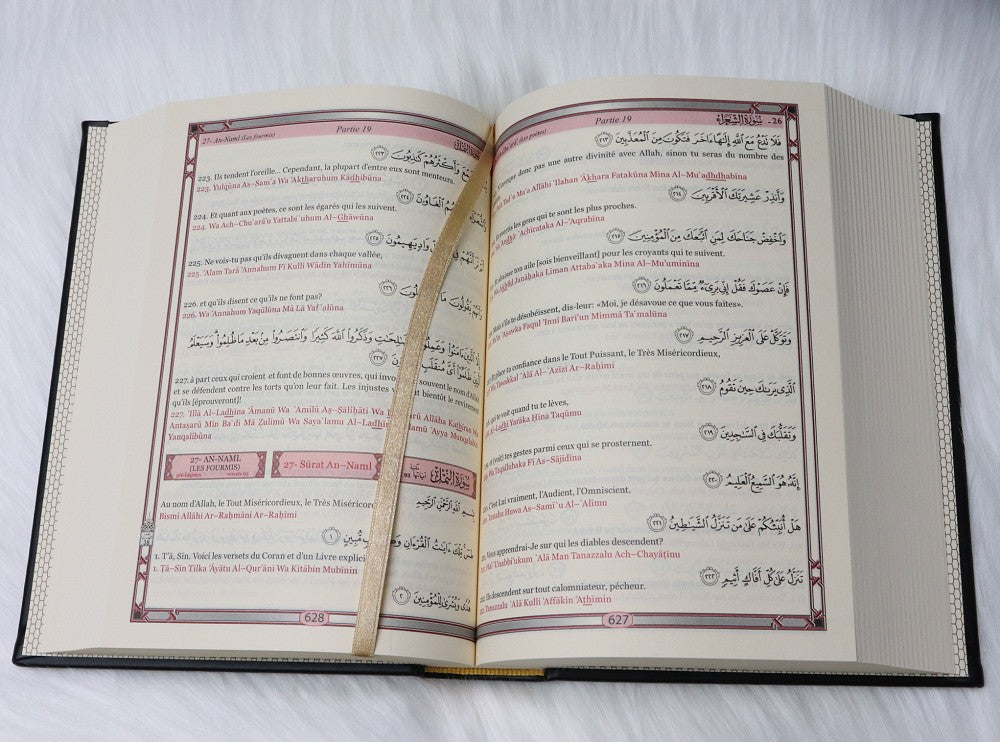 Partie 19
26 - سُورَةُ الشُّعَرَاءِ
(Les poètes)
فَلَا تَدْعُ مَعَ اللَّهِ إِلَٰهًا ءَاخَرَ فَتَكُونَ مِنَ الْمُعَذَّبِينَ ﴿٢١٣﴾
donc pas une autre divinité avec Allah, sinon tu seras du nombre des
Ma`a Allāhi 'Ilahan 'Ākhara Fatakūna Mina Al-Mu`adhdhabīna
وَأَنذِرْ عَشِيرَتَكَ الْأَقْرَبِينَ ﴿٢١٤﴾
les gens qui te sont les plus proches.
`Achīrataka Al-'Aqrabīna
وَاخْفِضْ جَنَاحَكَ لِمَنِ اتَّبَعَكَ مِنَ الْمُؤْمِنِينَ ﴿٢١٥﴾
ton aile [sois bienveillant] pour les croyants qui te suivent.
Janāĥaka Liman Attaba`aka Mina Al-Mu'uminīna
فَإِنْ عَصَوْكَ فَقُلْ إِنِّي بَرِيءٌ مِّمَّا تَعْمَلُونَ ﴿٢١٦﴾
te désobéissent, dis-leur: «Moi, je désavoue ce que vous faites».
`Aşawka Faqul 'Innī Barī'un Mimmā Ta`malūna
وَتَوَكَّلْ عَلَى الْعَزِيزِ الرَّحِيمِ ﴿٢١٧﴾
ta confiance dans le Tout Puissant, le Très Miséricordieux,
`Alá Al-`Azīzi Ar-Raĥīmi
الَّذِي يَرَاكَ حِينَ تَقُومُ ﴿٢١٨﴾
qui te voit quand tu te lèves,
Al-Ladhī Yarāka Ĥīna Taqūmu
وَتَقَلُّبَكَ فِي السَّاجِدِينَ ﴿٢١٩﴾
tes gestes parmi ceux qui se prosternent.
Wa Taqallubaka Fī As-Sājidīna
إِنَّهُ هُوَ السَّمِيعُ الْعَلِيمُ ﴿٢٢٠﴾
C'est Lui vraiment, l'Audient, l'Omniscient.
Huwa As-Samī`u Al-`Alīmu
هَلْ أُنَبِّئُكُمْ عَلَىٰ مَن تَنَزَّلُ الشَّيَاطِينُ ﴿٢٢١﴾
Vous apprendrai-Je sur qui les diables descendent?
'Unabbi'ukum `Alá Man Tanazzalu Ach-Chayāţīnu
تَنَزَّلُ عَلَىٰ كُلِّ أَفَّاكٍ أَثِيمٍ ﴿٢٢٢﴾
Ils descendent sur tout calomniateur, pécheur.
Tanazzalu `Alá Kulli 'Affākin 'Athīmin
627
27- An-Naml (Les fourmis)
Partie 19
وَأَكْثَرُهُمْ كَاذِبُونَ ﴿٢٢٣﴾
223. Ils tendent l'oreille... Cependant, la plupart d'entre eux sont menteurs.
223. Yulqūna As-Sam`a Wa 'Aktharuhum Kādhibūna
الْغَاوُونَ ﴿٢٢٤﴾
224. Et quant aux poètes, ce sont les égarés qui les suivent.
224. Wa Ach-Chu`arā'u Yattabi`uhum Al-Ghāwūna
وَادٍ يَهِيمُونَ ﴿٢٢٥﴾
225. Ne vois-tu pas qu'ils divaguent dans chaque vallée,
225. 'Alam Tará 'Annahum Fī Kulli Wādin Yahīmūna
يَقُولُونَ مَا ﴿٢٢٦﴾
226. et qu'ils disent ce qu'ils ne font pas?
226. Wa 'Annahum Yaqūlūna Mā Lā Yaf`alūna
الَّذِينَ ءَامَنُوا وَعَمِلُوا الصَّالِحَاتِ وَذَكَرُوا اللَّهَ كَثِيرًا وَانتَصَرُوا مِن بَعْدِ مَا ظُلِمُوا وَسَيَعْلَمُ
الَّذِينَ ظَلَمُوا أَيَّ مُنقَلَبٍ ﴿٢٢٧﴾
227. à part ceux qui croient et font de bonnes œuvres, qui souvent le nom d'Allah
et se défendent contre les torts qu'on leur fait. Les injustes bientôt le revirement
qu'ils [éprouveront]!
227. 'Illā Al-Ladhīna 'Āmanū Wa `Amilū Aş-Şāliĥāti Wa Allāha Kathīran
Antaşarū Min Ba`di Mā Žulimū Wa Saya`lamu Al-Ladhīna 'Ayya Munqalabin
Yanqalibūna
27- AN-NAML
(LES FOURMIS)
27- Sūrat An-Naml
سُورَةُ النَّمْلِ
بِسْمِ اللَّهِ الرَّحْمَٰنِ الرَّحِيمِ
Au nom d'Allah, le Tout Miséricordieux, le Très Miséricordieux
Bismi Allāhi Ar-Raĥmāni Ar-Raĥīmi
طس تِلْكَ ءَايَاتُ الْقُرْءَانِ مُّبِينٍ ﴿١﴾
1. T'ā, Sīn. Voici les versets du Coran et d'un Livre explicite
1. Ţā-Sīn Tilka 'Āyātu Al-Qur'āni Wa Kitābin Mubīnin
هُدًى وَبُشْرَىٰ لِلْمُؤْمِنِينَ ﴿٢﴾
628